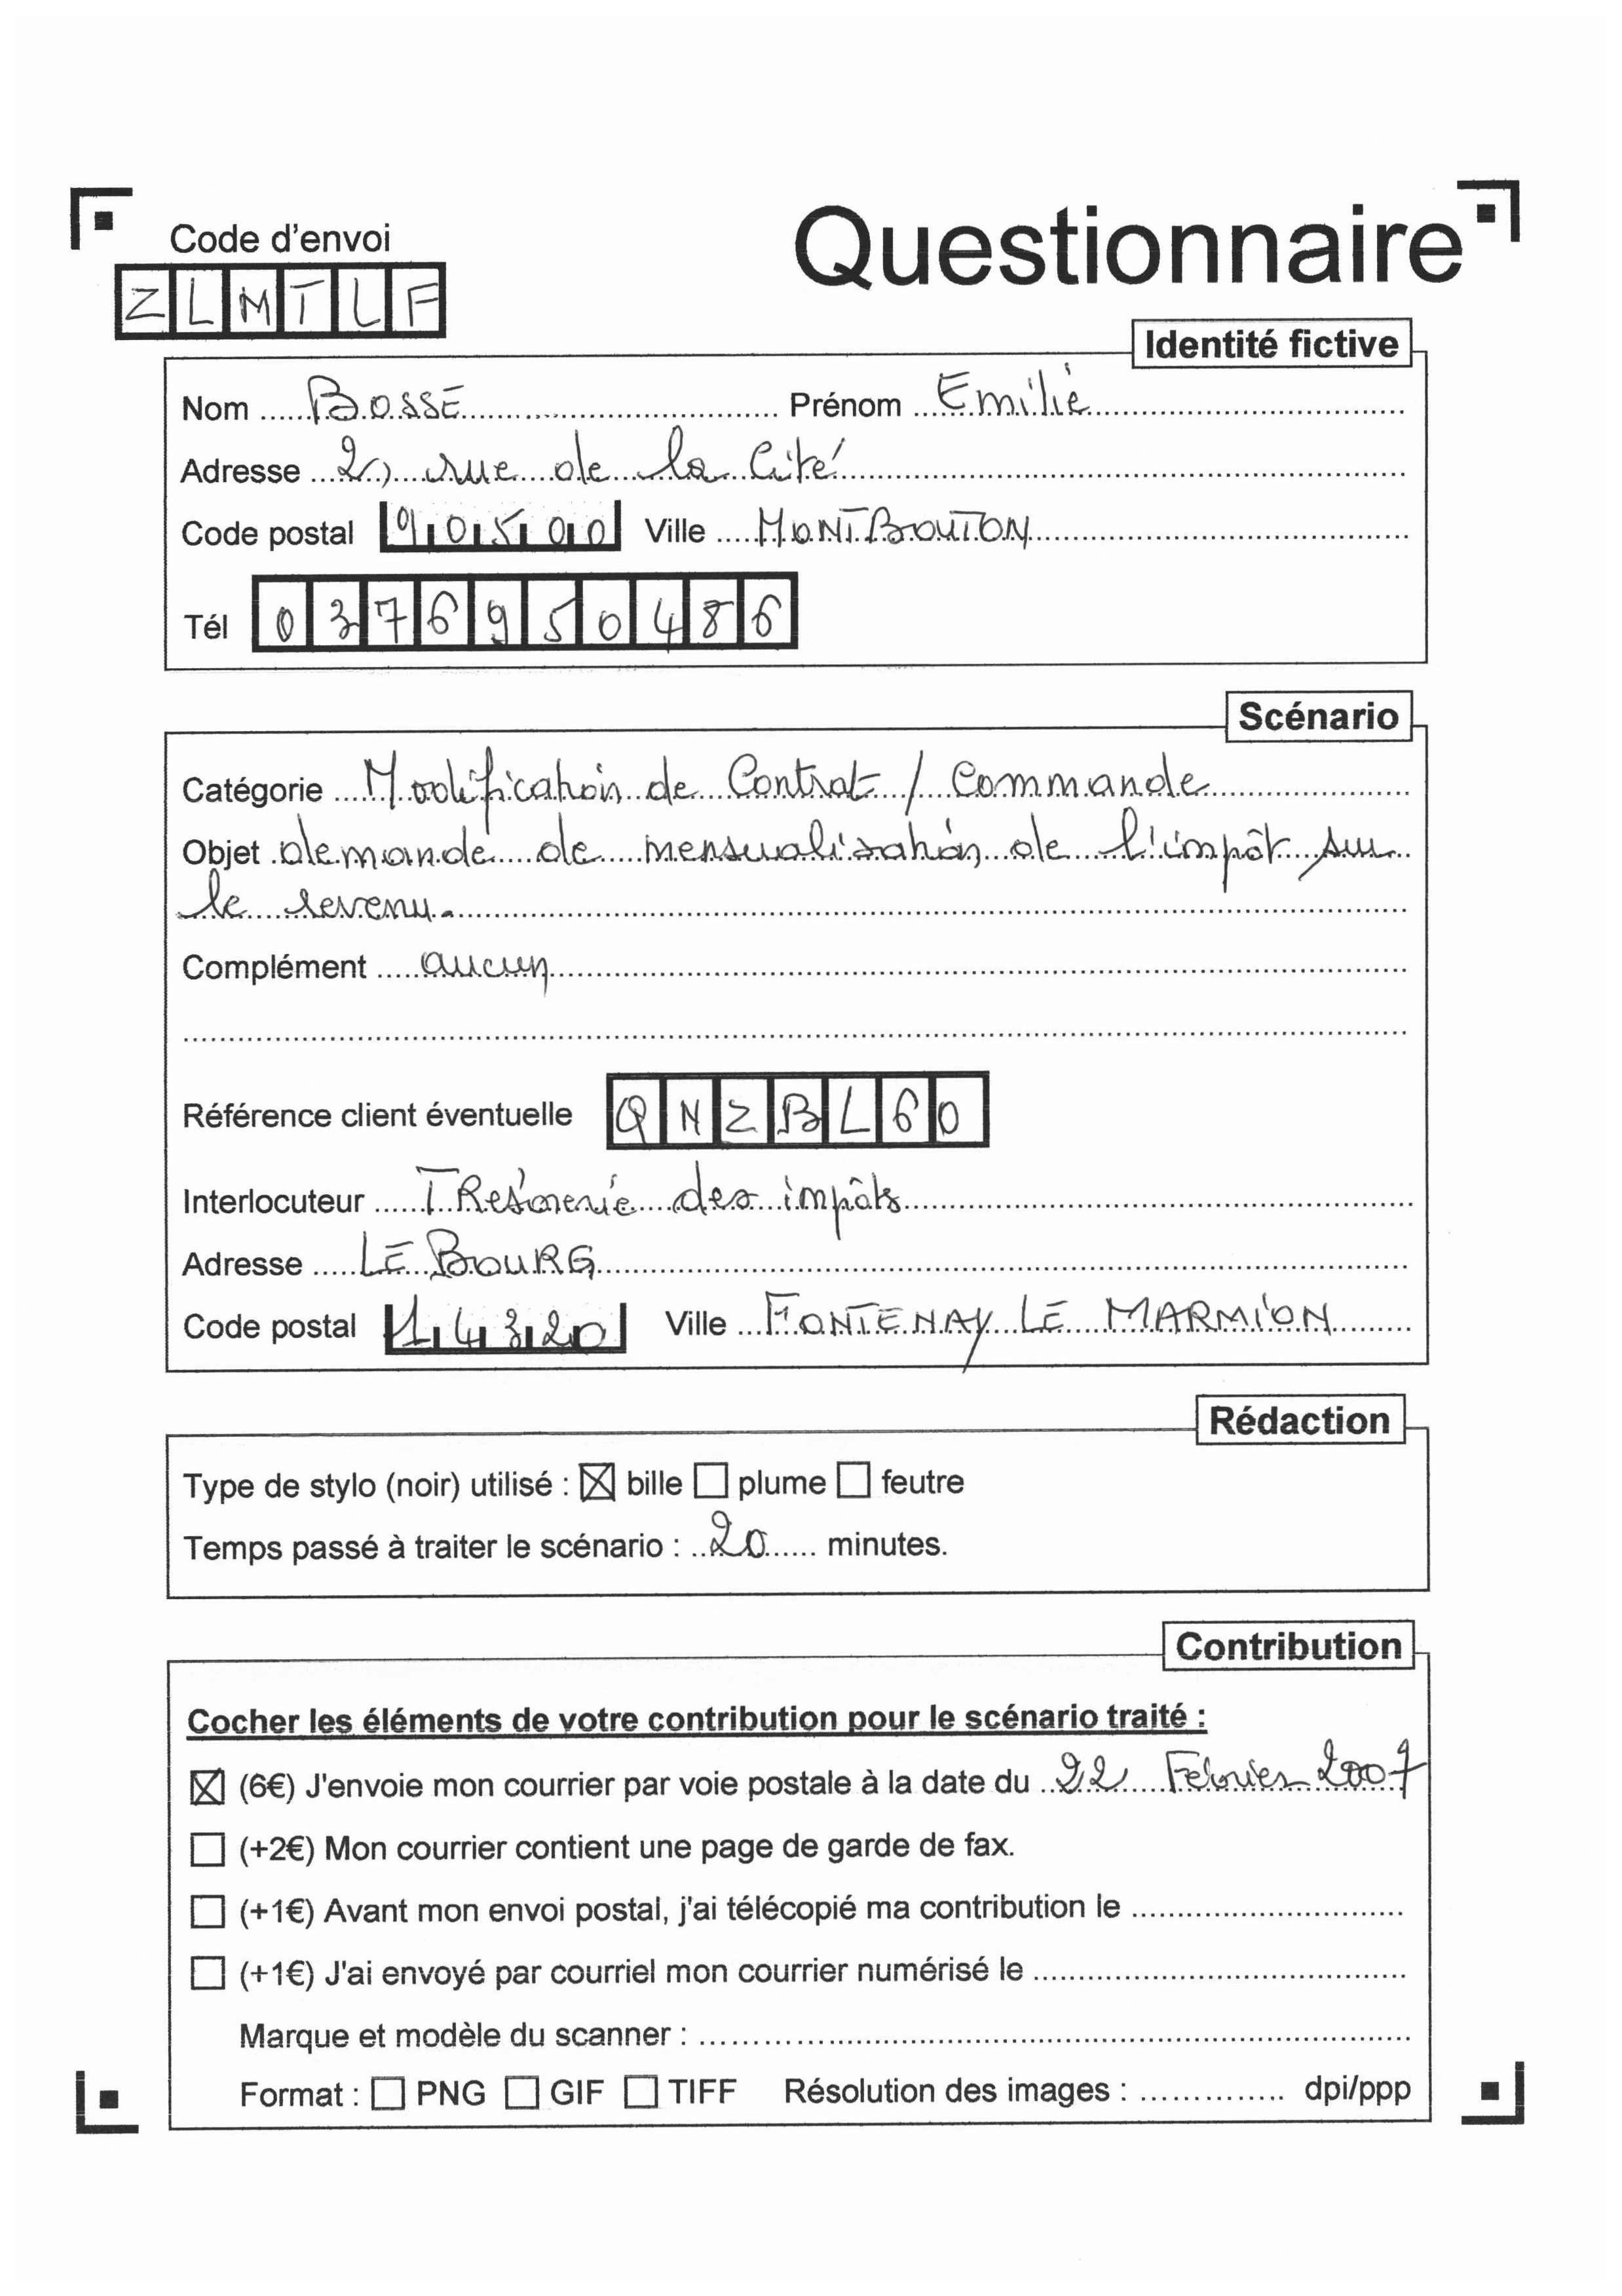 Code d'envoi
Questionnaire
ZLMTLF
Identité fictive
Nom BOSSE Prénom Emilie
Adresse 2, rue de la Cité
Code postal 90500 Ville MONTBOUTON
Tél 0376950486
Scénario
Catégorie Modification de Contrat / Commande
Objet demande de mensualisation de l'impôt sur
le revenu.
Complément aucun
Référence client éventuelle QNZBL60
Interlocuteur TResorerie des impôts
Adresse LE BOURG
Code postal 14320 Ville FONTENAY LE MARMION
Rédaction
Type de stylo (noir) utilisé : ☒ bille ☐ plume ☐ feutre
Temps passé à traiter le scénario : 20 minutes.
Contribution
Cocher les éléments de votre contribution pour le scénario traité :
☒ (6€) J'envoie mon courrier par voie postale à la date du 22 Février 2007
☐ (+2€) Mon courrier contient une page de garde de fax.
☐ (+1€) Avant mon envoi postal, j'ai télécopié ma contribution le
☐ (+1€) J'ai envoyé par courriel mon courrier numérisé le
Marque et modèle du scanner :
Format : ☐ PNG ☐ GIF ☐ TIFF Résolution des images : dpi/ppp